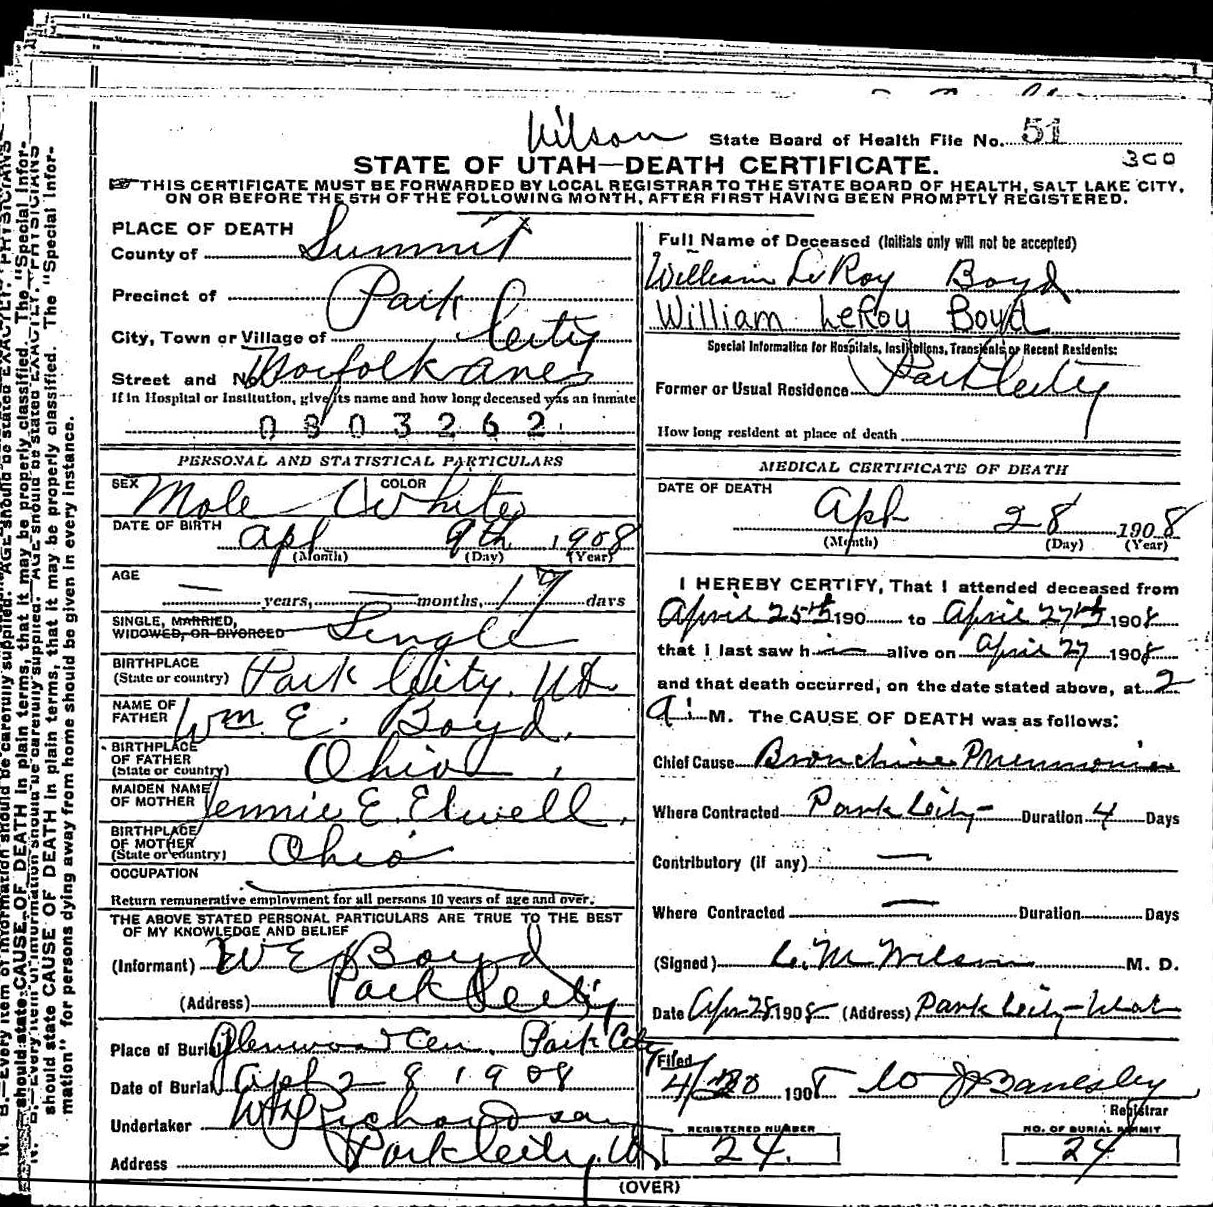 Wilson
State Board of Health File No. 51
300
STATE OF UTAH—DEATH CERTIFICATE.
THIS CERTIFICATE MUST BE FORWARDED BY LOCAL REGISTRAR TO THE STATE BOARD OF HEALTH, SALT LAKE CITY,
ON OR BEFORE THE 5TH OF THE FOLLOWING MONTH, AFTER FIRST HAVING BEEN PROMPTLY REGISTERED.
PLACE OF DEATH
County of Summit
Precinct of Park
City, Town or Village of City
Street and No. Norfolk ave
If in Hospital or Institution, give its name and how long deceased was an inmate
0803262
PERSONAL AND STATISTICAL PARTICULARS
SEX Male COLOR White
DATE OF BIRTH Apl 9th 1908
(Month) (Day) (Year)
AGE
— years, — months, 19 days
SINGLE, MARRIED,
WIDOWED, OR DIVORCED Single
BIRTHPLACE
(State or country) Park City. Ut.
NAME OF
FATHER Wm E. Boyd.
BIRTHPLACE
OF FATHER
(State or country) Ohio
MAIDEN NAME
OF MOTHER Jennie E. Elwell.
BIRTHPLACE
OF MOTHER
(State or country) Ohio
OCCUPATION
Return remunerative employment for all persons 10 years of age and over.
THE ABOVE STATED PERSONAL PARTICULARS ARE TRUE TO THE BEST
OF MY KNOWLEDGE AND BELIEF
(Informant) W E Boyd
(Address) Park City
Place of Burial Glenwood Cem. Park City
Date of Burial Apl 28 1908
Undertaker Wm Richardson
Address Park City, Ut
Full Name of Deceased (Initials only will not be accepted)
William LeRoy Boyd
William LeRoy Boyd
Special Information for Hospitals, Institutions, Transients or Recent Residents:
Former or Usual Residence Park City
How long resident at place of death
MEDICAL CERTIFICATE OF DEATH
DATE OF DEATH
Apl 28 1908
(Month) (Day) (Year)
I HEREBY CERTIFY, That I attended deceased from
April 25th 190 to April 27th 1908
that I last saw him alive on April 27 1908
and that death occurred, on the date stated above, at 2
A. M. The CAUSE OF DEATH was as follows:
Chief Cause Pneumonia
Where Contracted Park City - Duration 4 Days
Contributory (if any) —
Where Contracted — Duration Days
(Signed) Wilson M. D.
Date Apr 28 1908 (Address) Park City - Utah
Filed
4/30 1908
Registrar
REGISTERED NUMBER
24.
NO. OF BURIAL PERMIT
24
(OVER)
should state CAUSE OF DEATH in plain terms, that it may be properly classified. The "Special Infor-
mation" for persons dying away from home should be given in every instance.